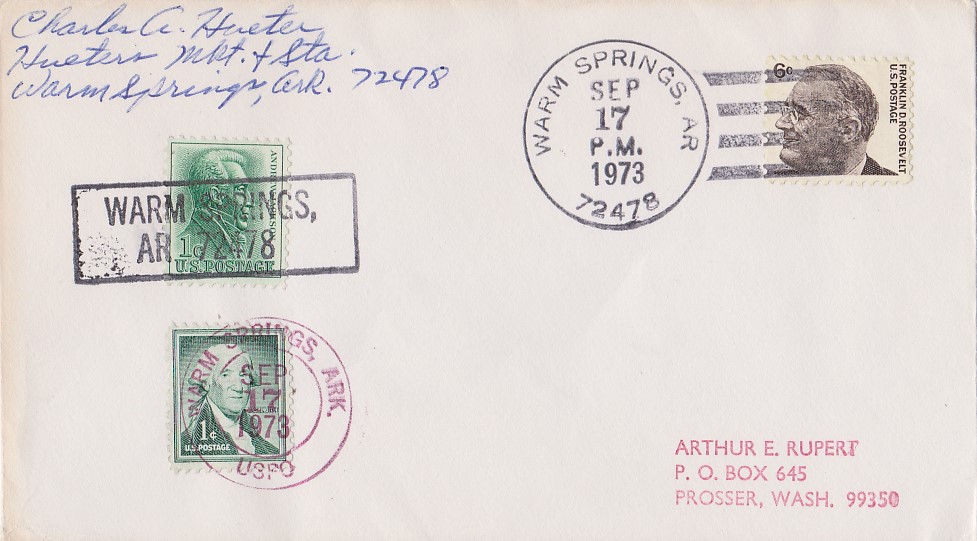 Charles A. Hueter
Hueters Mkt. + Sta.
Warm Springs, Ark. 72478
WARM SPRINGS, AR
SEP
17
P.M.
1973
72478
6¢
FRANKLIN D. ROOSEVELT
U.S. POSTAGE
ANDREW JACKSON
1¢
U.S. POSTAGE
WARM SPRINGS,
AR 72478
WARM SPRINGS, ARK.
SEP
17
1973
USPO
1¢
U.S. POSTAGE
ARTHUR E. RUPERT
P. O. BOX 645
PROSSER, WASH. 99350